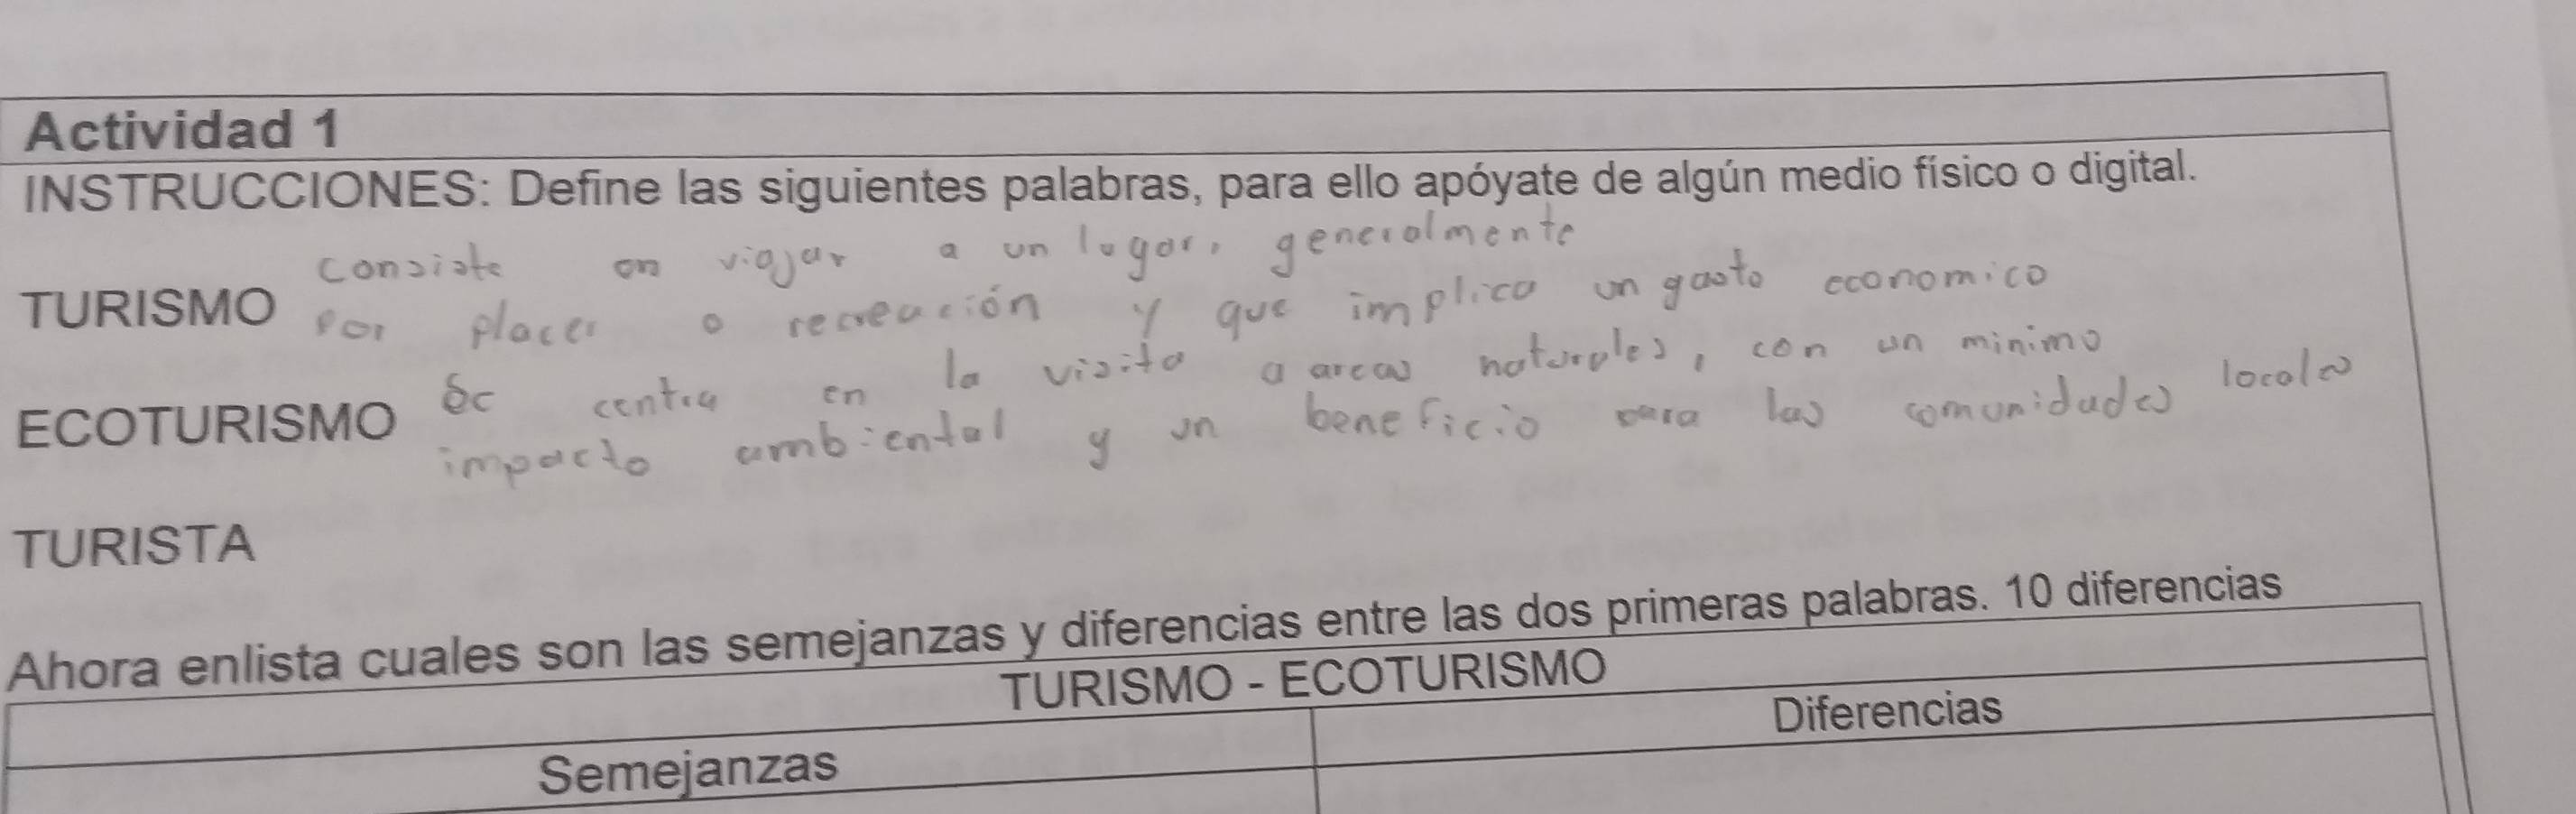 Actividad 1
INSTRUCCIONES: Define las siguientes palabras, para ello apóyate de algún medio físico o digital.
TURISMO consiste en viajar a un lugar, generalmente
por placer o recreación y que implica un gasto economico
ECOTURISMO Se centra en la visita a areas naturales, con un minimo
impacto ambiental y un beneficio para las comunidades locales
TURISTA
Ahora enlista cuales son las semejanzas y diferencias entre las dos primeras palabras. 10 diferencias
TURISMO - ECOTURISMO
Semejanzas Diferencias